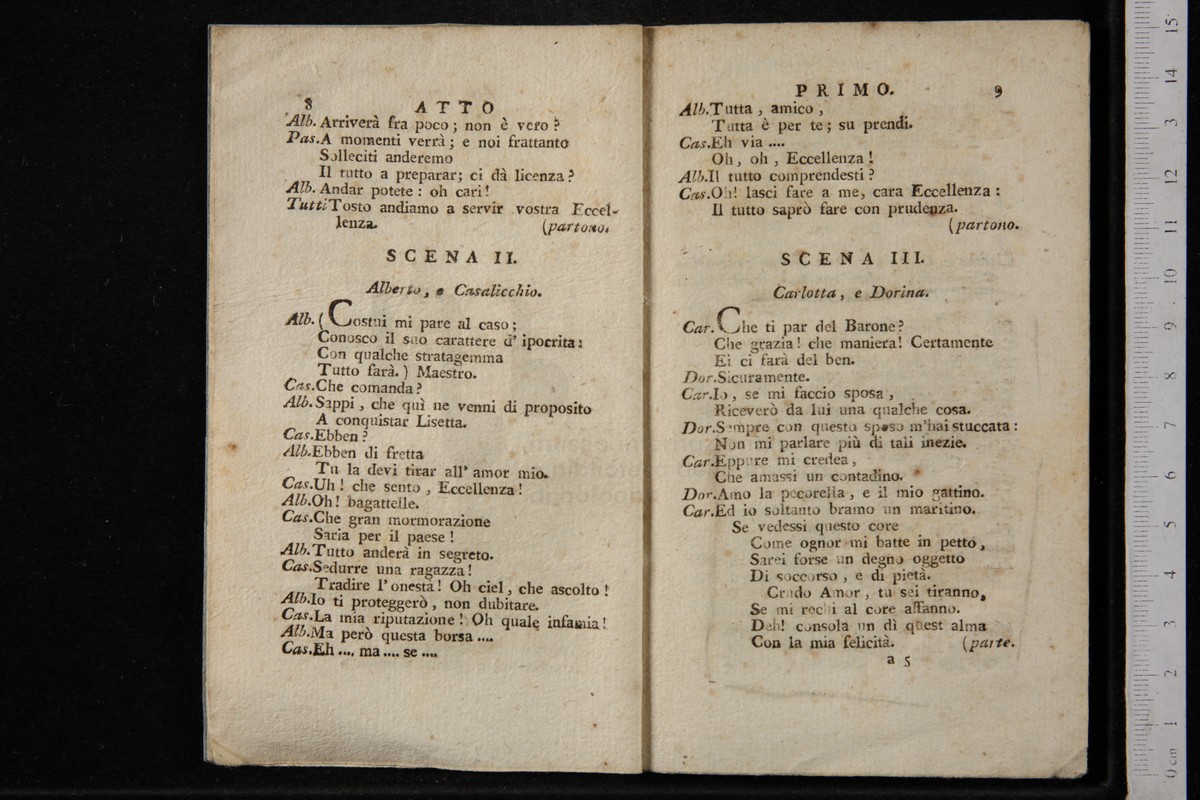 8 ATTO
Alb. Arriverà fra poco ; non è vero ?
Pas. A momenti verrà ; e noi frattanto
Solleciti anderemo
Il tutto a preparar; ci dà licenza ?
Alb. Andar potete : oh cari !
Tutti Tosto andiamo a servir vostra Eccel-
lenza. (partono.
SCENA II.
Alberto, e Casalicchio.
Alb. ( Costui mi pare al caso ;
Conosco il suo carattere d' ipocrita :
Con qualche stratagemma
Tutto farà. ) Maestro.
Cas. Che comanda ?
Alb. Sappi , che quì ne venni di proposito
A conquistar Lisetta.
Cas. Ebben ?
Alb. Ebben di fretta
Tu la devi tirar all' amor mio.
Cas. Uh ! che sento , Eccellenza !
Alb. Oh ! bagattelle.
Cas. Che gran mormorazione
Saria per il paese !
Alb. Tutto anderà in segreto.
Cas. Sedurre una ragazza !
Tradire l' onestà ! Oh ciel , che ascolto !
Alb. Io ti proteggerò , non dubitare.
Cas. La mia riputazione ! Oh quale infamia !
Alb. Ma però questa borsa ....
Cas. Eh .... ma .... se ....
PRIMO. 9
Alb. Tutta , amico ,
Tutta è per te ; su prendi.
Cas. Eh via ....
Oh , oh , Eccellenza !
Alb. Il tutto comprendesti ?
Cas. Oh! lasci fare a me, cara Eccellenza :
Il tutto saprò fare con prudenza.
(partono.
SCENA III.
Carlotta , e Dorina.
Car. Che ti par del Barone ?
Che grazia ! che maniera! Certamente
Ei ci farà del ben.
Dor. Sicuramente.
Car. Io , se mi faccio sposa ,
Riceverò da lui una qualche cosa.
Dor. Sempre con questo sposo m'hai stuccata :
Non mi parlare più di tali inezie.
Car. Eppure mi credea ,
Che amassi un contadino.
Dor. Amo la pecorella , e il mio gattino.
Car. Ed io soltanto bramo un maritino.
Se vedessi questo core
Come ognor mi batte in petto ,
Sarei forse un degno oggetto
Di soccorso , e di pietà.
Crudo Amor , tu sei tiranno,
Se mi rechi al core affanno.
Deh! consola un dì quest alma
Con la mia felicità. (parte.
a 5
0 cm 1 2 3 4 5 6 7 8 9 10 11 12 13 14 15